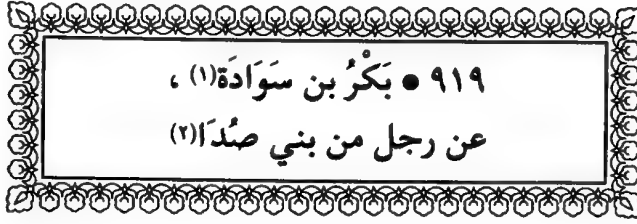 ٩١٩ ● بَكْرُ بن سَوَادَة(١) ،
عن رجل من بني صُدَا(٢)